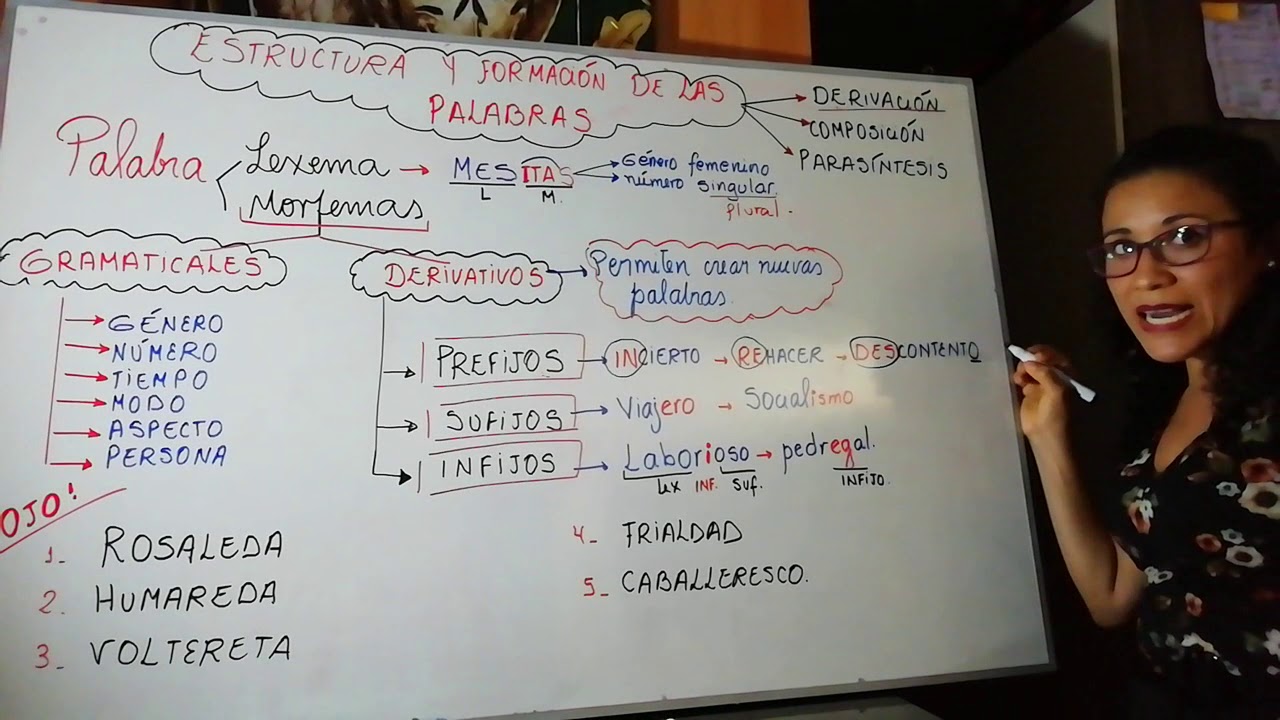 ESTRUCTURA Y FORMACIÓN DE LAS
PALABRAS
DERIVACIÓN
COMPOSICIÓN
PARASÍNTESIS
Palabra
Lexema → MESITAS
L M.
Género femenino
número singular.
plural.
Morfemas
GRAMATICALES
GÉNERO
NÚMERO
TIEMPO
MODO
ASPECTO
PERSONA
DERIVATIVOS
Permiten crear nuevas
palabras.
PREFIJOS → INCIERTO → REHACER → DESCONTENTO
SUFIJOS → Viajero → Socialismo
INFIJOS → Laborioso → pedregal.
Lex INF. Suf. INFIJO.
OJO!
1- ROSALEDA
2. HUMAREDA
3- VOLTERETA
4- FRIALDAD
5- CABALLERESCO.